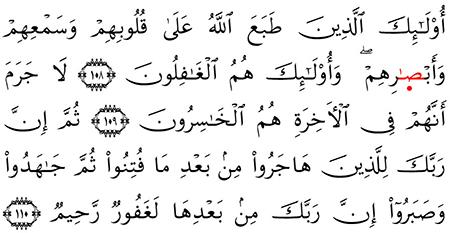 أُوْلَٰٓئِكَ ٱلَّذِينَ طَبَعَ ٱللَّهُ عَلَىٰ قُلُوبِهِمْ وَسَمْعِهِمْ
وَأَبْصَٰرِهِمْ ۖ وَأُوْلَٰٓئِكَ هُمُ ٱلْغَٰفِلُونَ ١٠٨ لَا جَرَمَ
أَنَّهُمْ فِى ٱلْأَخِرَةِ هُمُ ٱلْخَٰسِرُونَ ١٠٩ ثُمَّ إِنَّ
رَبَّكَ لِلَّذِينَ هَاجَرُواْ مِنۢ بَعْدِ مَا فُتِنُواْ ثُمَّ جَٰهَدُواْ
وَصَبَرُوٓاْ إِنَّ رَبَّكَ مِنۢ بَعْدِهَا لَغَفُورٌ رَّحِيمٌ ١١٠